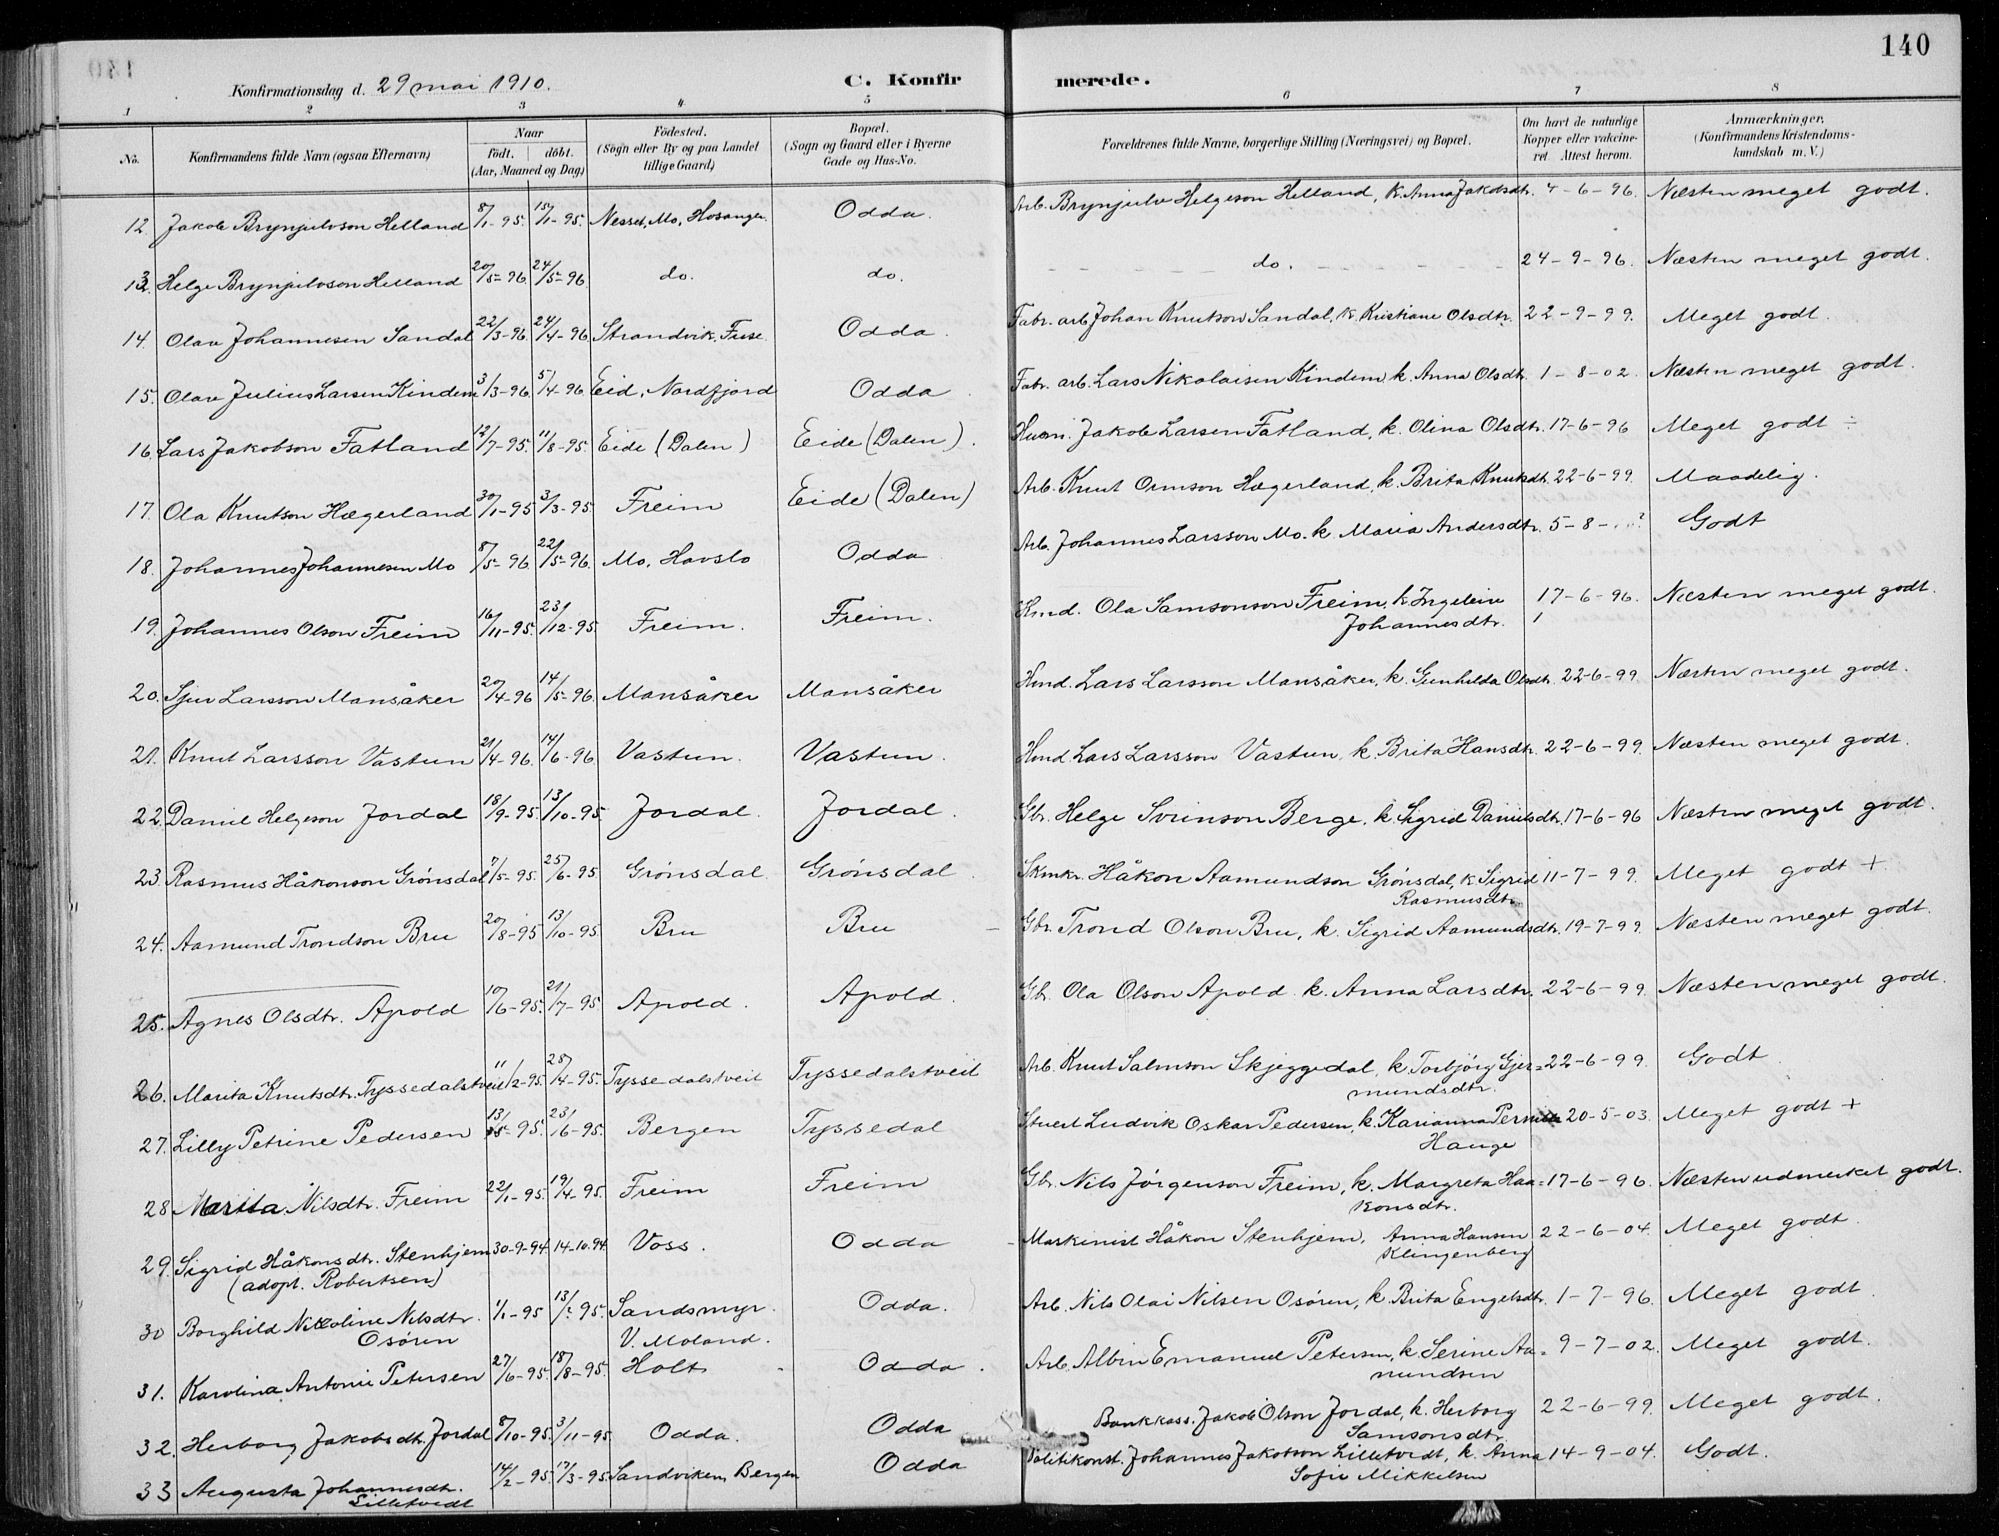 140
Konfirmationsdag d. 29 mai 1910.
C. Konfirmerede.
1 2 3 4 5 6 7 8
No. Konfirmandens fulde Navn (ogsaa Efternavn) Naar födt. döbt. (Aar, Maaned og Dag) Födested. (Sogn eller By og paa Landet tillige Gaard) Bopæl. (Sogn og Gaard eller i Byerne Gade og Hus-No. Forældrenes fulde Navne, borgerlige Stilling (Næringsvei) og Bopæl. Om havt de naturlige Kopper eller vakcineret. Attest herom. Anmærkninger. (Konfirmandens Kristendomskundskab m. V.)
12. Jakob Brynjulvson Helland 8/1-95. 15/1-95. Nesset, Mo, Hosanger. Odda. Arb. Brynjulv Helgeson Helland, k. Anna Jakobsdtr. 4-6-96. Næsten meget godt.
13. Helge Brynjulvson Helland 20/5-96. 24/5-96. do. do. do. 24-9-96. Næsten meget godt.
14. Olav Johannesen Sandal 22/3-96. 24/4-96. Strandvik, Fuse. Odda. Fabr. arb. Johan Knutson Sandal, k. Kristiane Olsdtr. 22-9-99. Meget godt.
15. Olav Julius Larsen Kindem 3/3-96. 5/4-96. Eid, Nordfjord Odda. Fabr. arb. Lars Nikolaisen Kindem, k. Anna Olsdtr. 1-8-02. Næsten meget godt.
16. Lars Jakobson Fatland 12/7-95. 11/8-95. Eide (Dalen) Eide (Dalen). Husm. Jakob Larsen Fatland, k. Olina Olsdtr. 17-6-96 Meget godt ÷
17. Ola Knutson Hægerland 30/1-95 3/3-95. Freim Eide (Dalen) Arb. Knut Ormson Hægerland, k. Brita Knutsdt. 22-6-99. Maadelig.
18. Johannes Johannesen Mo 8/5-96. 22/5-96. Mo, Havslo Odda. Arb. Johannes Larsson Mo. k Maria Andersdtr. 5-8-..? Godt
19. Johannes Olson Freim 16/11-95. 23/12-95. Freim. Freim. Hmd. Ola Samsonson Freim, k. Ingeleiv 17-6-96. Næsten meget godt.
Johannesdtr.
20. Sjur Larsson Mansåker 20/4-96 14/5-96. Mansåker Mansåker Hmd. Lars Larsson Mansåker, k. Gunhilda Olsdt. 22-6-99. Næsten meget godt.
21. Knut Larsson Vastun 21/4-96. 14/6-96 Vastun. Vastun. Hmd. Lars Larsson Vastun, k. Brita Hansdtr. 22-6-99. Næsten meget godt.
22. Daniel Helgeson Jordal 18/9-95. 13/10-95 Jordal. Jordal. Gbr. Helge Sveinson Berge, k. Sigrid Danielsdtr. 17-6-96 Næsten meget godt.
23. Rasmus Håkonson Grönsdal 7/5-95. 25/6-95 Grönsdal. Grönsdal. Skmkr. Håkon Aamundson Grönsdal, k. Sigrid 11-7-99. Meget godt +
Rasmusdtr.
24. Aamund Trondson Bru 20/8-95 13/10-95 Bru Bru Gbr. Trond Olson Bru, k. Sigrid Aamundsdtr. 19-7-99. Næsten meget godt.
25. Agnes Olsdtr. Apold 10/6-95. 21/7-95 Apold. Apold. Gb. Ola Olson Apold k. Anna Larsdtr. 22-6-99. Næsten meget godt.
26. Marita Knutsdtr. Tyssedalstveit 11/2-95. 28/4-95. Tyssedalstveit Tyssedalstveit Arb. Knut Salmson Skjeggedal, k Torbjörg Gjer= 22-6-99. Godt.
mundsdtr.
27. Lilly Petrine Pedersen 13/5-95. 23/6-95. Bergen Tyssedal Stuert Ludvik Oskar Pedersen, k. Karianna Pernille 20-5-03. Meget godt +
Hauge
28 Marita Nilsdtr. Freim 22/1-95. 19/4-95. Freim Freim Gbr. Nils Jörgenson Freim, k. Margreta Haa= 17-6-96. Næsten udmerket godt.
konsdtr.
29. Sigrid Håkonsdtr. Stenhjem 30-9-94. 14-10-94 Voss. Odda Maskinist Håkon Stenhjem, Anna Hansen 22-6-04. Meget godt.
(adopt. Robertsen) Klingenberg
30 Borghild Nikoline Nilsdtr. 1/1-95 13/?-95. Sandsmyr. Odda. Arb. Nils Olai Nilsen Osören, k. Brita Engelsdtr. 1-7-96. Meget godt.
Osören V. Moland.
31. Karolina Antonie Petersen 27/6-95. 18/8-95. Holt Odda. Arb. Albin Emanuel Petersen, k. Serine Aa= 9-7-02. Meget godt.
mundsen
32. Herborg Jakobsdtr. Jordal 8/10-95. 3/11-95 Odda. Odda Bankkass. Jakob Olson Jordal, k. Herborg 22-6-99. Meget godt.
Samsonsdtr.
33 Augusta Johannesdtr. 14/2-95. 17/3-95 Sandviken, Bergen Odda Politikonst. Johannes Jakobson Lilletvedt, k. Anna 14-9-04. Godt.
Lilletvedt Sofie Mikkelsen